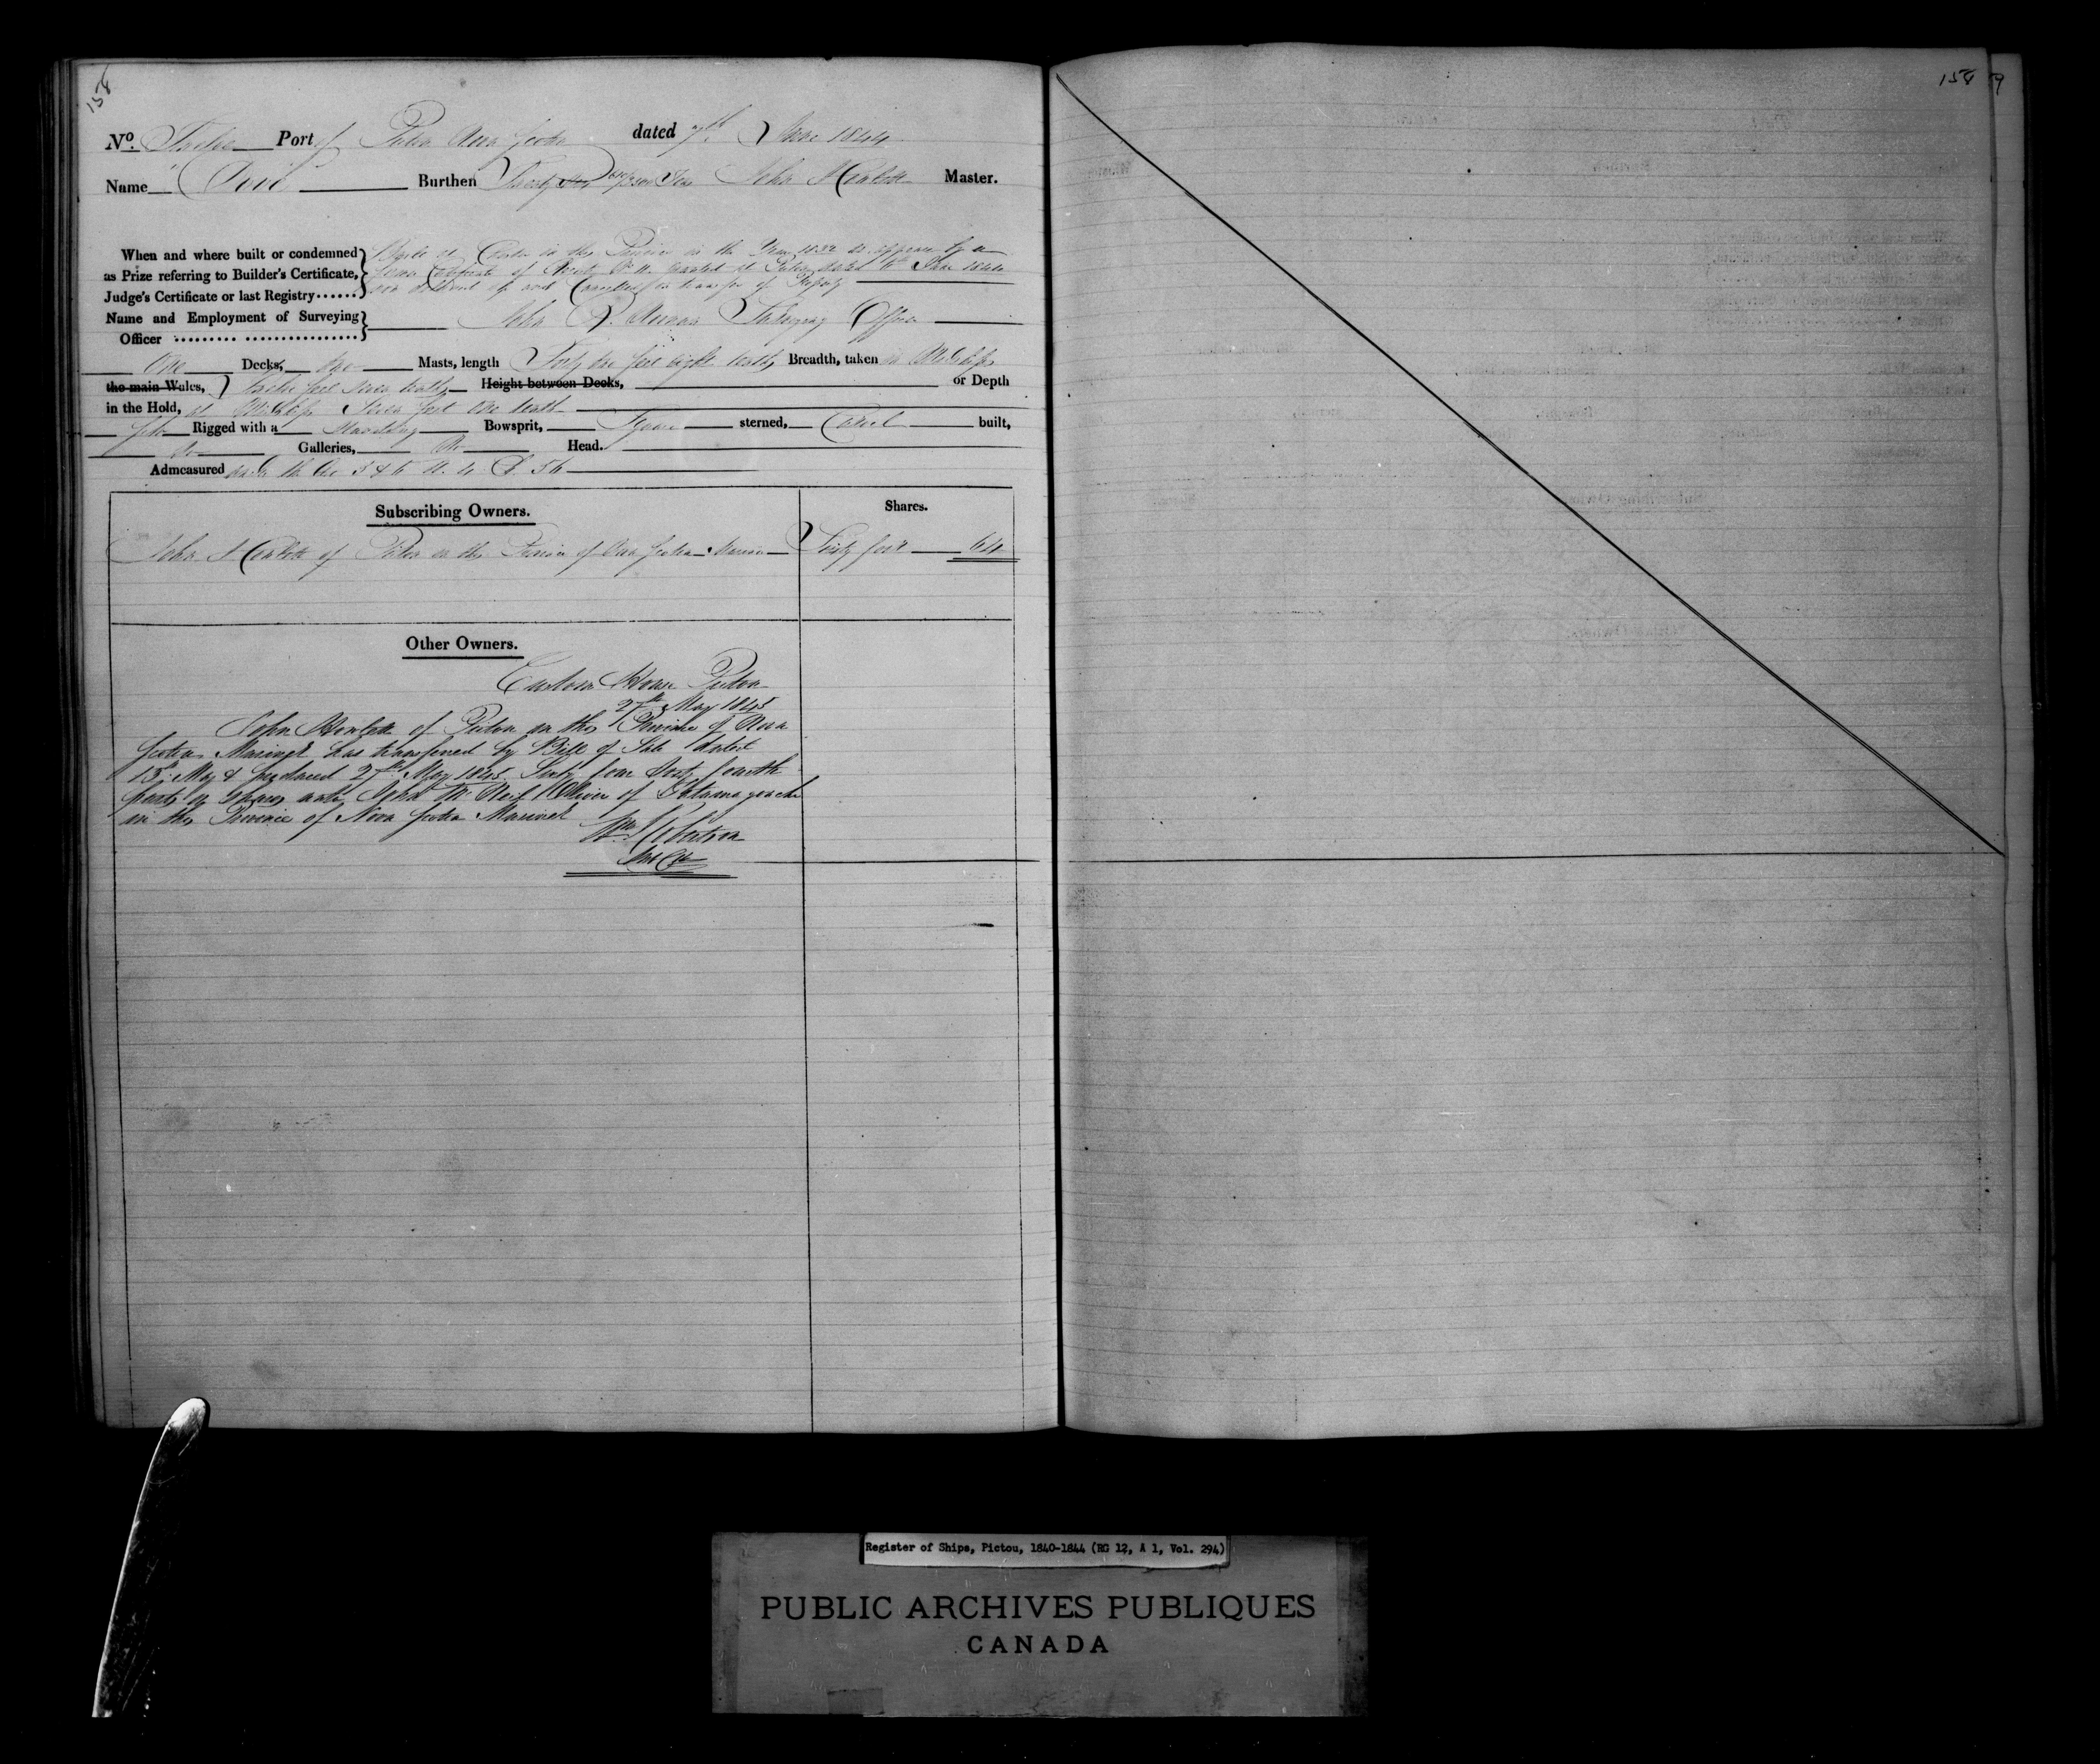 158
No. Twelve Port of Pictou Nova Scotia dated 7th June 1844
Name "Dove" Burthen Twenty Tons John Howlett Master.
When and where built or condemned as Prize referring to Builder's Certificate, Judge's Certificate or last Registry......
Built at in this Province in the Year 1832 as appears by a
Certificate of Registry No. granted at Pictou dated 6th June 1844
now delivered up and Cancelled on transfer of Property
Name and Employment of Surveying Officer
John D. Surveying Officer
One Decks, One Masts, length Forty one feet eight tenths, Breadth, taken in Midships
the main Wales, Twelve feet seven tenths Height between Decks, or Depth
in the Hold, at Midships Seven feet One tenth
Rigged with a Standing Bowsprit, Square sterned, Carvel built,
No Galleries, No Head.
Admeasured under the Act 5 & 6 W. 4 C. 56
Subscribing Owners. Shares.
John Howlett of Pictou in the Province of Nova Scotia Mariner Sixty four 64
Other Owners.
Custom House Pictou
27th May 1845
John Howlett of Pictou in the Province of Nova
Scotia Mariner has transferred by Bill of Sale dated
15th May & produced 27th May 1845 Sixty four Sixty fourth
parts or shares unto John Mc Neil Oliver of Tatamagouche
in the Province of Nova Scotia Mariner
Wm Robertson
158 9
Register of Ships, Pictou, 1840-1844 (RG 12, A 1, Vol. 294)
PUBLIC ARCHIVES PUBLIQUES
CANADA